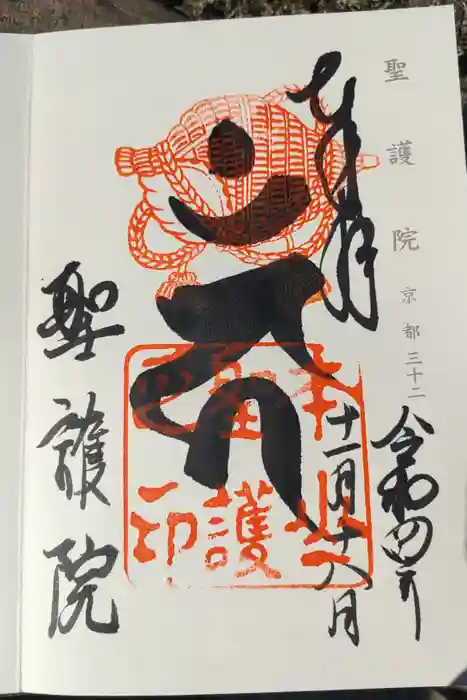 聖護院 京都三十二
奉拝
令和四年
十一月十八日
聖護院
本山
聖護
印